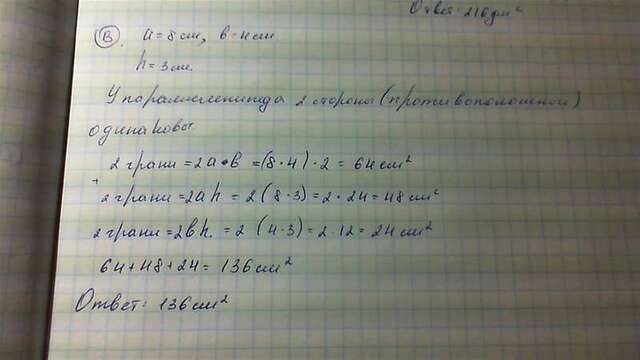 Ответ: 216 дм²
В. a = 8 см, в = 4 см
h = 3 см.
У параллелепипеда 2 стороны (противоположной)
одинаковы
2 грани = 2a • в = (8 · 4) · 2 = 64 см²
+ 2 грани = 2ah = 2 (8 · 3) = 2 · 24 = 48 см²
2 грани = 2вh. = 2 (4 · 3) = 2 · 12 = 24 см²
64 + 48 + 24 = 136 см²
Ответ: 136 см²